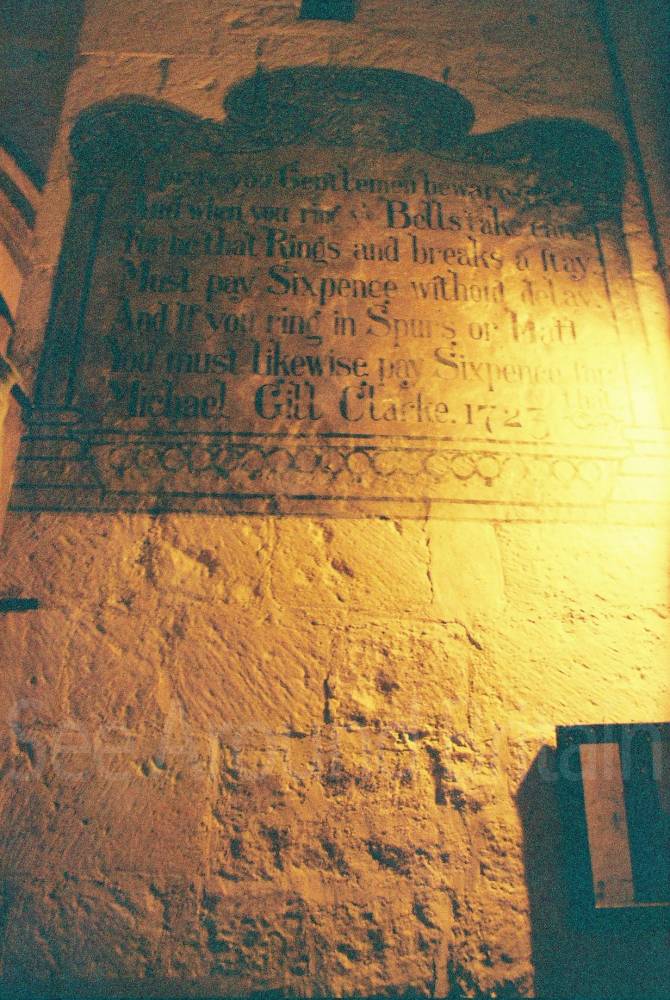 I pray you Gentlemen beware
And when you ring yͤ Bells take care
For he that Rings and breaks a stay
Must pay Sixpence without delay.
And If you ring in Spurs or Hatt
You must likewise pay Sixpence for
that
Michael Gill Clarke. 1723
See Around Britain